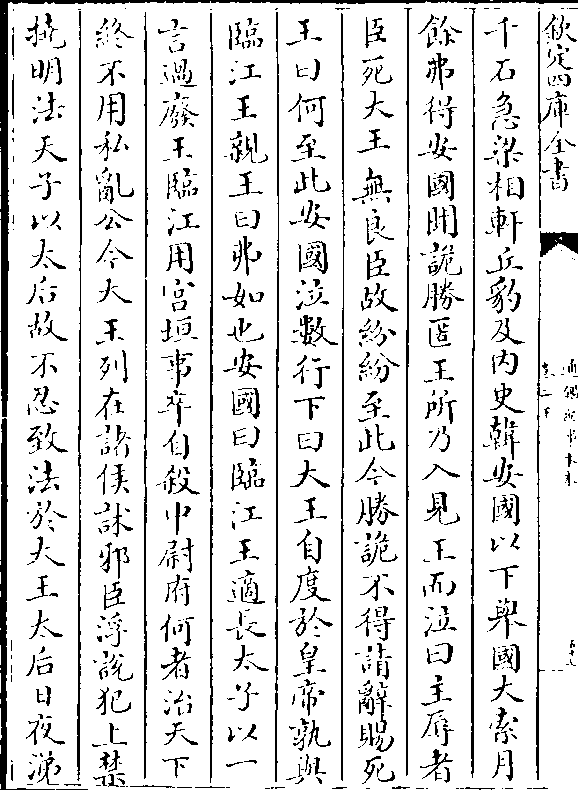 欽定四庫全書
通鑑紀事本末
卷二下
千石急梁相軒丘豹及內史韓安國以下舉國大索月
餘弗得安國聞詭勝匿王所乃入見王而泣曰主辱者
臣死大王無良臣故紛紛至此今勝詭不得請辭賜死
王曰何至此安國泣數行下曰大王自度於皇帝孰與
臨江王親王曰弗如也安國曰臨江王適長太子以一
言過廢王臨江用宫垣事卒自殺中尉府何者治天下
終不用私亂公今大王列在諸侯訹邪臣浮說犯上禁
撓明法天子以太后故不忍致法於大王太后日夜涕